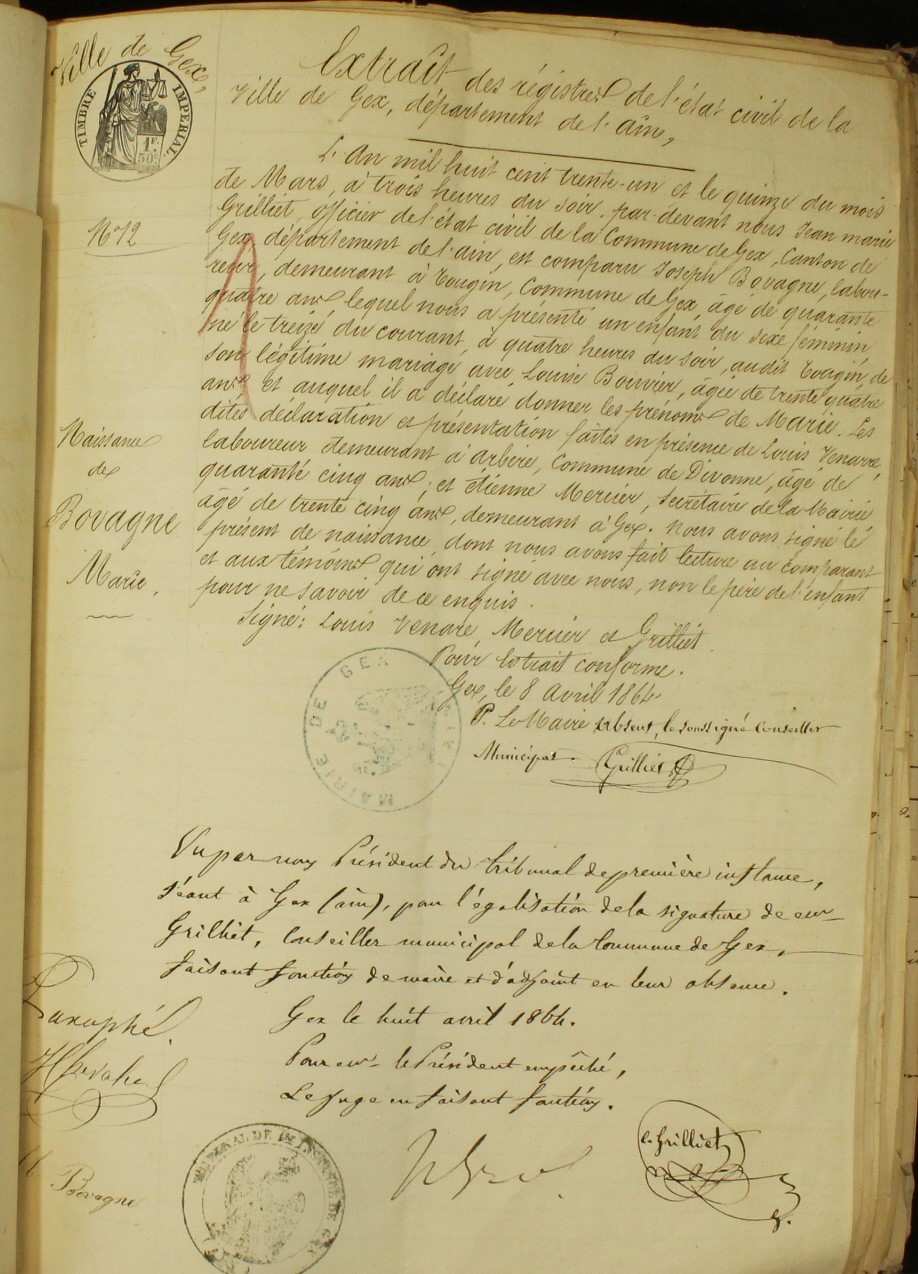 Ville de Gex,
TIMBRE IMPERIAL
1F.
50c.
Extrait des régistres de l'état civil de la
Ville de Gex, département de l'ain,
L'An mil huit cent trente-un et le quinze du mois
de Mars, à trois heures du soir par-devant nous Jean marie
Grilliet, officier de l'état civil de la Commune de Gex, Canton de
Gex, département de l'ain, est comparu Joseph Bovagne, labou-
reur, demeurant à Tougin, Commune de Gex, âgé de quarante
quatre ans lequel nous a présenté un enfant du sexe féminin
né le treize du courant, à quatre heures du soir, audit Tougin, de
son légitime mariage avec Louise Bouvier, âgée de trente quatre
ans et auquel il a déclaré donner les prénoms de Marie. Les
dites déclaration et présentation faites en présence de Louis Venarre,
laboureur demeurant à arbere, Commune de Divonne, âgé de
quarante cinq ans, et étienne Mercier, Secrétaire de la Mairie
âgé de trente cinq ans, demeurant à Gex. Nous avons signé le
présent de naissance, dont nous avons fait lecture au comparant
et aux témoins qui ont signé avec nous, non le père de l'enfant
pour ne savoir de ce enquis.
Signé: Louis Venare, Mercier et Grilliet.
Pour extrait conforme.
Gex, le 8 Avril 1864
P. Le Maire absent, le soussigné Conseiller
Municipal.
Grilliet
MAIRIE DE GEX
No 12
Naissance
de
Bovagne
Marie.
Vu par nous Président du tribunal de première instance,
séant à Gex (ain), pour légalisation de la signature de mr
Grilliet, Conseiller municipal de la Commune de Gex,
faisant fonction de maire et d'adjoint en leur absence.
Gex le huit avril 1864.
Pour mr le Président empêché,
Le Juge en faisant fonction.
Paraphé
Bovagne
TRIBUNAL DE 1RE INSTANCE DE GEX
Grilliet